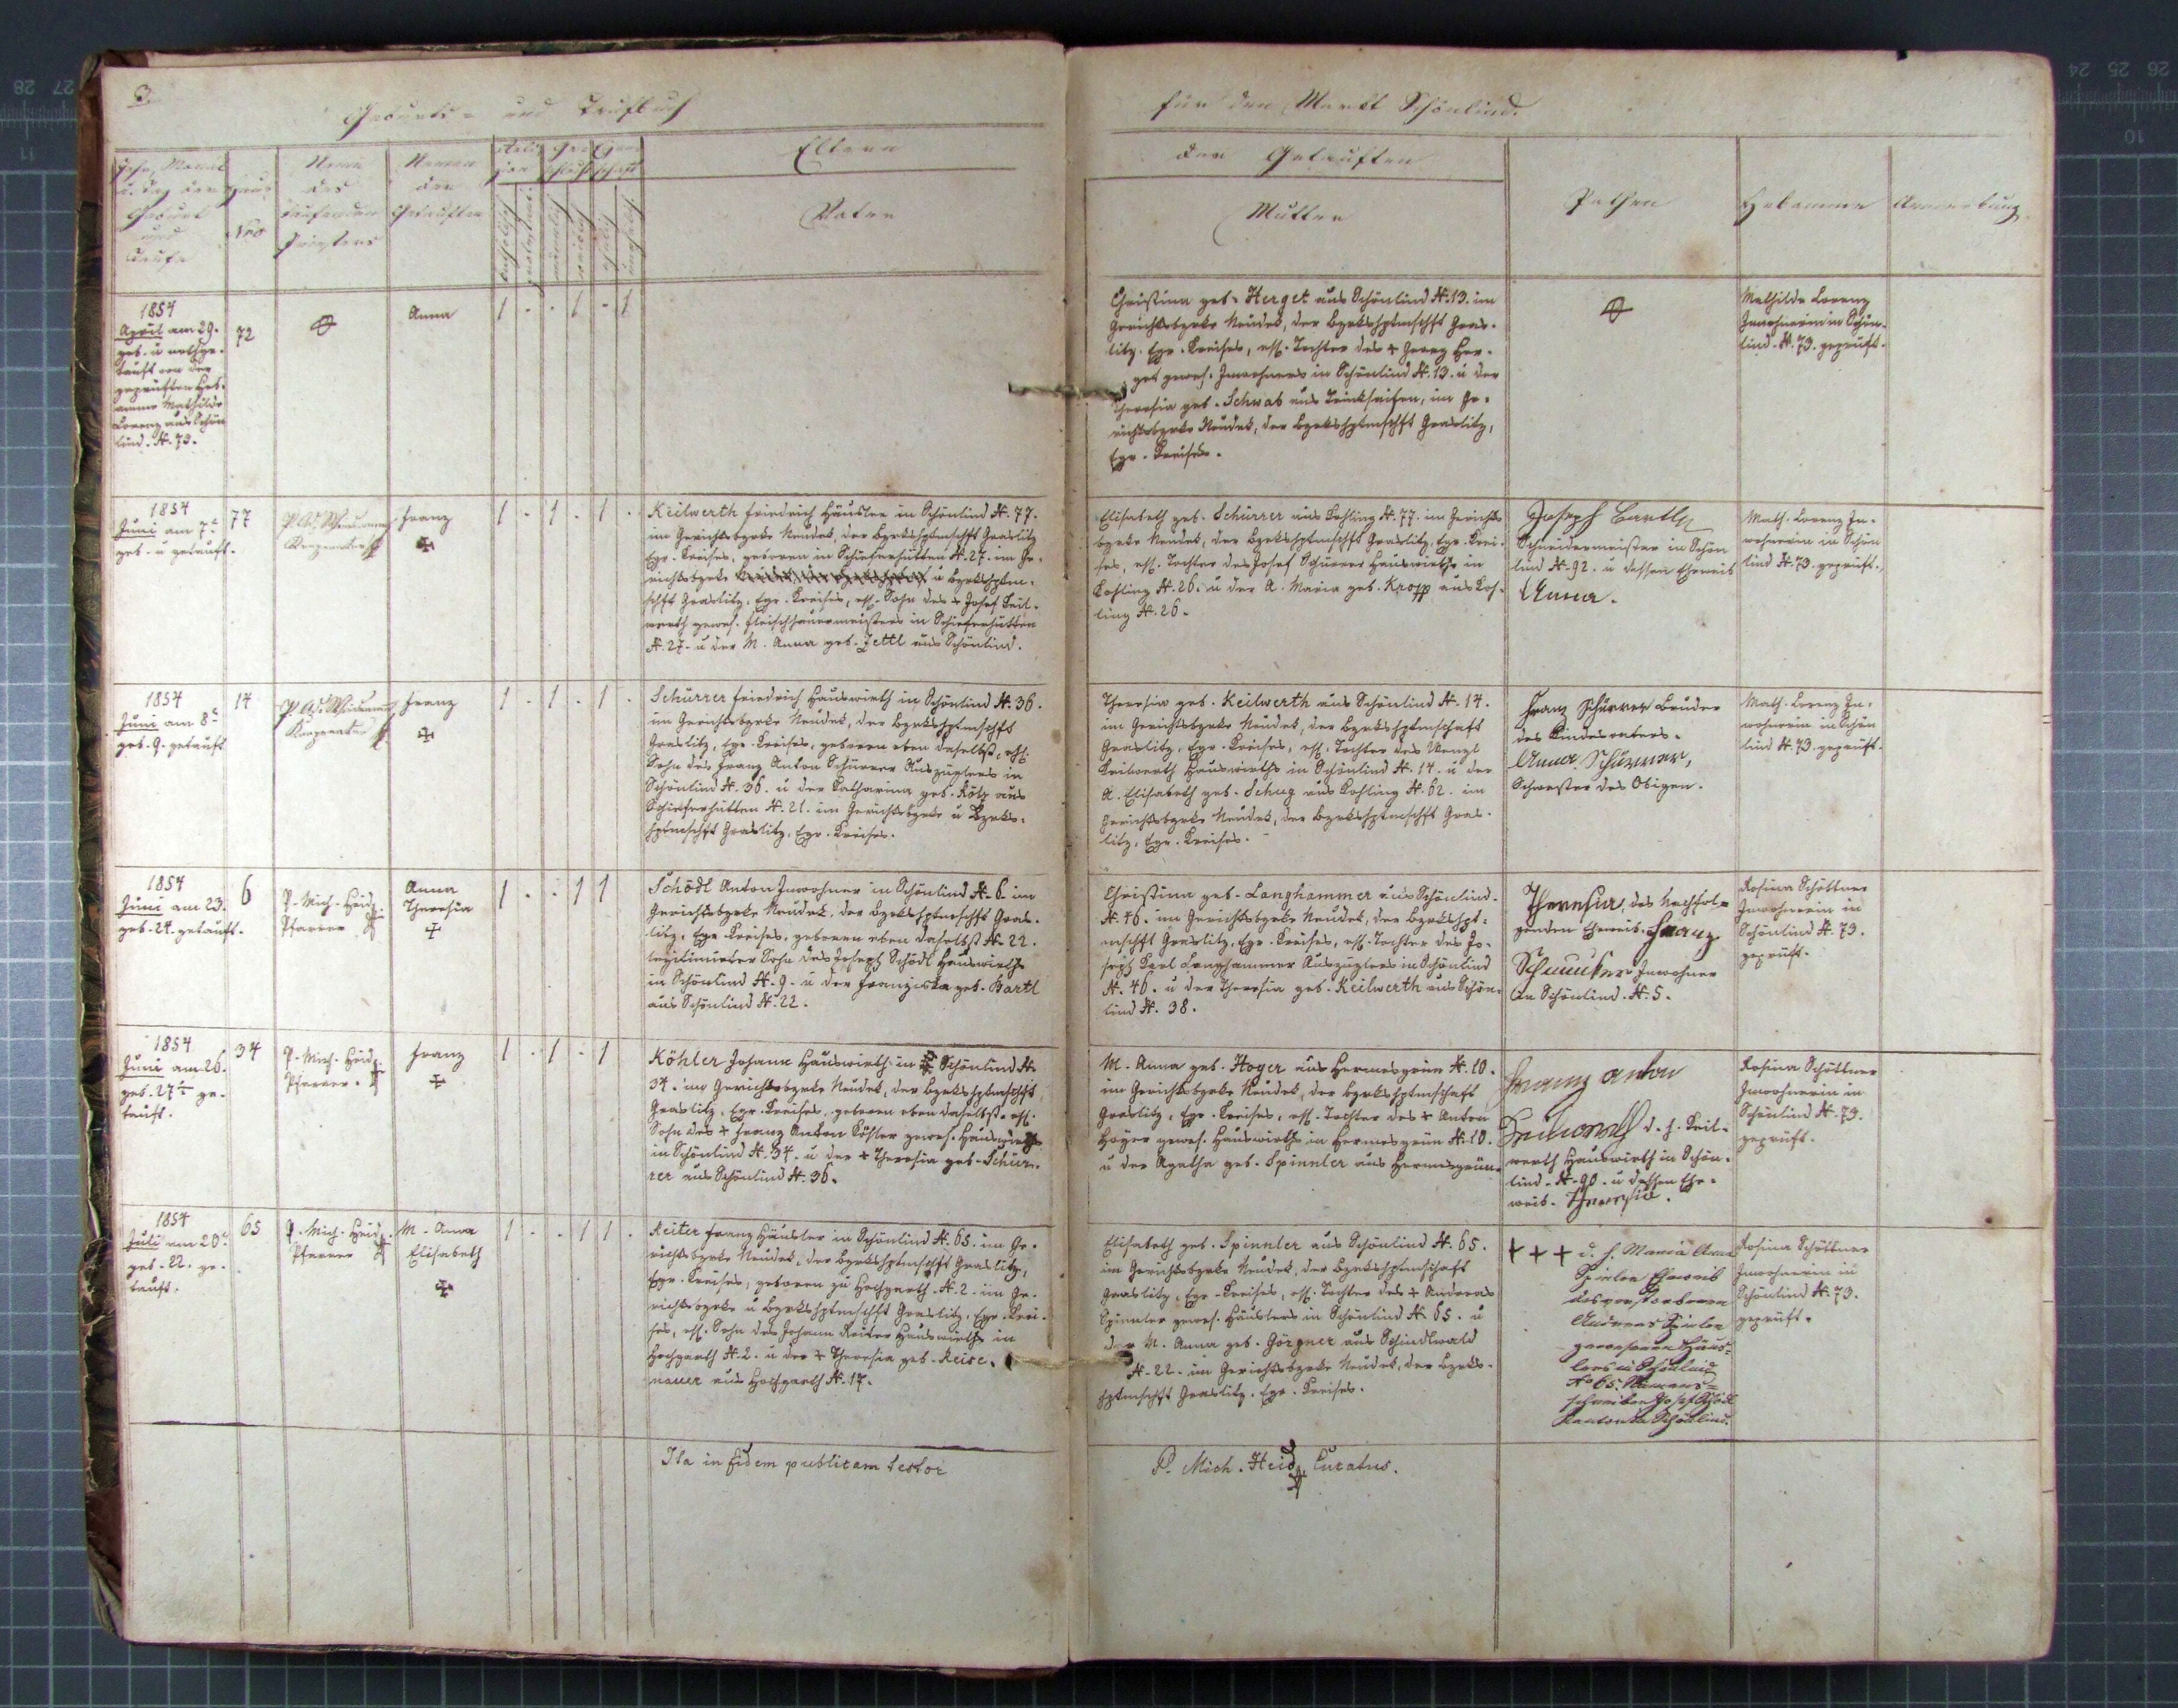 3
Geburts- und Taufbuch
für den Markt Schönlind.
Jahr, Monat
u. Tag der
Geburt
und
Taufe
Haus
Nro
Name
des
taufenden
Priesters
Namen
der
Getauften
Reli-
gion
Ge-
schlecht
katholisch
männlich
weiblich
ehelich
unehelich
Eltern
Vater
der Getauften
Mutter
Pathen
Hebamme
Anmerkung
1854
April am 29.
geb. u nothge-
tauft von der
geprüften Heb-
amme Mathilde
Lorenz aus Schön
lind. N. 73.
72
Anna
1 - - 1 - 1
Christina geb. Herget aus Schönlind N. 13. im
Gerichtsbzrke Neudek, der Bzrkshptmschft Gras-
litz. Egr. Kreises, ehl. Tochter des + Georg Her-
get gewes. Inwohners in Schönlind N. 13. u der
Theresia geb. Schwab aus Trinksaifen, im Ge-
richtsbzrke Neudek, der Bzrkshptmschft Graslitz,
Egr. Kreises.
Mathilde Lorenz
Inwohnerin in Schön-
lind. N. 73. geprüft.
1854
Juni am 7.
geb. u getauft.
77
Franz
1 - 1 - 1 -
Keilwerth Friedrich Häusler in Schönlind N. 77.
im Gerichtsbzrke Neudek, der Bzrkshptmschft Graslitz
Egr. Kreises, geboren in Schieferhütten N. 27. im Ge-
richtsbzrke u Bzrkshptm-
schft Graslitz, Egr. Kreises, ehl. Sohn des + Josef Keil-
werth gewes. Fleischhauermeisters in Schieferhütten
N. 27. u der M. Anna geb. Zettl aus Schönlind.
Elisabeth geb. Schürrer aus Kohling N. 77. im Gerichts
bzrke Neudek, der Bzrkshptmschft Graslitz, Egr. Krei-
ses, ehl. Tochter des Josef Schürrer Hauswirths in
Kohling N. 26. u der A. Maria geb. Kropp aus Koh-
ling N. 26.
Joseph Bartl
Schneidermeister in Schön
lind N. 92. u dessen Eheweib
Anna.
Math. Lorenz In-
wohnerin in Schön
lind N. 73. geprüft.
1854
Juni am 8.
geb. 9. getauft
14
Franz
1 - 1 - 1 -
Schürrer Friedrich Hauswirth in Schönlind N. 36.
im Gerichtsbzrke Neudek, der Bzrkshptmschft
Graslitz, Egr. Kreises, geboren eben daselbst, ehl.
Sohn des Franz Anton Schürrer Auszüglers in
Schönlind N. 36. u der Katharina geb. Kölz aus
Schieferhütten N. 21. im Gerichtsbzrke u Bzrks-
hptmschft Graslitz, Egr. Kreises.
Theresia geb. Keilwerth aus Schönlind N. 14.
im Gerichtsbzrke Neudek, der Bzrkshptmschaft
Graslitz, Egr. Kreises, ehl. Tochter des Wenzl
Keilwerth Hauswirths in Schönlind N. 14. u der
A. Elisabeth geb. Schug aus Kohling N. 62. im
Gerichtsbzrke Neudek, der Bzrkshptmschft Gras-
litz, Egr. Kreises.
Franz Schürrer Bruder
des Kindesvaters.
Anna Schürrer,
Schwester des Obigen.
Math. Lorenz In-
wohnerin in Schön
lind N. 73. geprüft.
1854
Juni am 23.
geb. 24. getauft.
6
P. Mich. Heid
Pfarrer
Anna
Theresia
1 - - 1 1
Schödl Anton Inwohner in Schönlind N. 6. im
Gerichtsbzrke Neudek, der Bzrkshptmschft Gras-
litz, Egr. Kreises, geboren eben daselbst N. 22.
legitimirter Sohn des Joseph Schödl Hauswirths
in Schönlind N. 9. u der Franziska geb. Bartl
aus Schönlind N. 22.
Christina geb. Langhammer aus Schönlind.
N. 46. im Gerichtsbzrke Neudek, der Bzrkshpt-
mschft Graslitz, Egr. Kreises, ehl. Tochter des Jo-
seph Karl Langhammer Auszüglers in Schönlind
N. 46. u der Theresia geb. Keilwerth aus Schön-
lind N. 38.
Theresia, des Nachfol-
genden Eheweib. Franz
Inwohner
in Schönlind. N. 5.
Rosina Schöttner
Inwohnerin in
Schönlind N. 73.
geprüft.
1854
Juni am 26.
geb. 27. ge-
tauft.
34
P. Mich. Heid
Pfarrer.
Franz
1 - 1 - 1
Köhler Johann Hauswirth in Schönlind N.
34. im Gerichtsbzrke Neudek, der Bzrkshptmschft
Graslitz, Egr. Kreises, geboren eben daselbst, ehl.
Sohn des + Franz Anton Köhler gewes. Hauswirths
in Schönlind N. 34. u der + Theresia geb. Schür-
rer aus Schönlind N. 36.
M. Anna geb. Hoyer aus Hermesgrün N. 10.
im Gerichtsbzrke Neudek, der Bzrkshptmschaft
Graslitz, Egr. Kreises, ehl. Tochter des + Anton
Hoyer gewes. Hauswirths in Hermesgrün N. 10.
u der Agatha geb. Spinnler aus Hermesgrün.
Franz Anton
d. h. Keil-
werth Hauswirth in Schön-
lind. N. 90. u dessen Ehe-
weib. Theresia.
Rosina Schöttner
Inwohnerin in
Schönlind N. 73.
geprüft.
1854
Juli am 20.
geb. 22. ge-
tauft.
65
P. Mich. Heid
Pfarrer
M. Anna
Elisabeth
1 - - 1 1 -
Reiter Franz Häusler in Schönlind N. 65. im Ge-
richtsbzrke Neudek, der Bzrkshptmschft Graslitz,
Egr. Kreises, geboren zu Hochgarth N. 2. im Ge-
richtsbzrke u Bzrkshptmschft Graslitz, Egr. Krei-
ses, ehl. Sohn des Johann Reiter Hauswirths in
Hochgarth N. 2. u der + Theresia geb. Reise-
nauer aus Hochgarth N. 17.
Elisabeth geb. Spinnler aus Schönlind N. 65.
im Gerichtsbzrke Neudek, der Bzrkshptmschaft
Graslitz, Egr. Kreises, ehl. Tochter des + Andreas
Spinnler gewes. Häuslers in Schönlind N. 65. u
der M. Anna geb. Görgner aus Schindlwald
N. 22. im Gerichtsbzrke Neudek, der Bzrks-
hptmschft Graslitz. Egr. Kreises.
+ + + d. h. Maria Anna
Eheweib
des verstorbenen
Andreas
gewesenen Häus-
lers in Schönlind
No 65. Namens-
schreiber Josef Schödl
in Schönlind.
Rosina Schöttner
Inwohnerin in
Schönlind N. 73.
geprüft.
Ita in fidem publicam testor
P. Mich. Heid, Curatus.